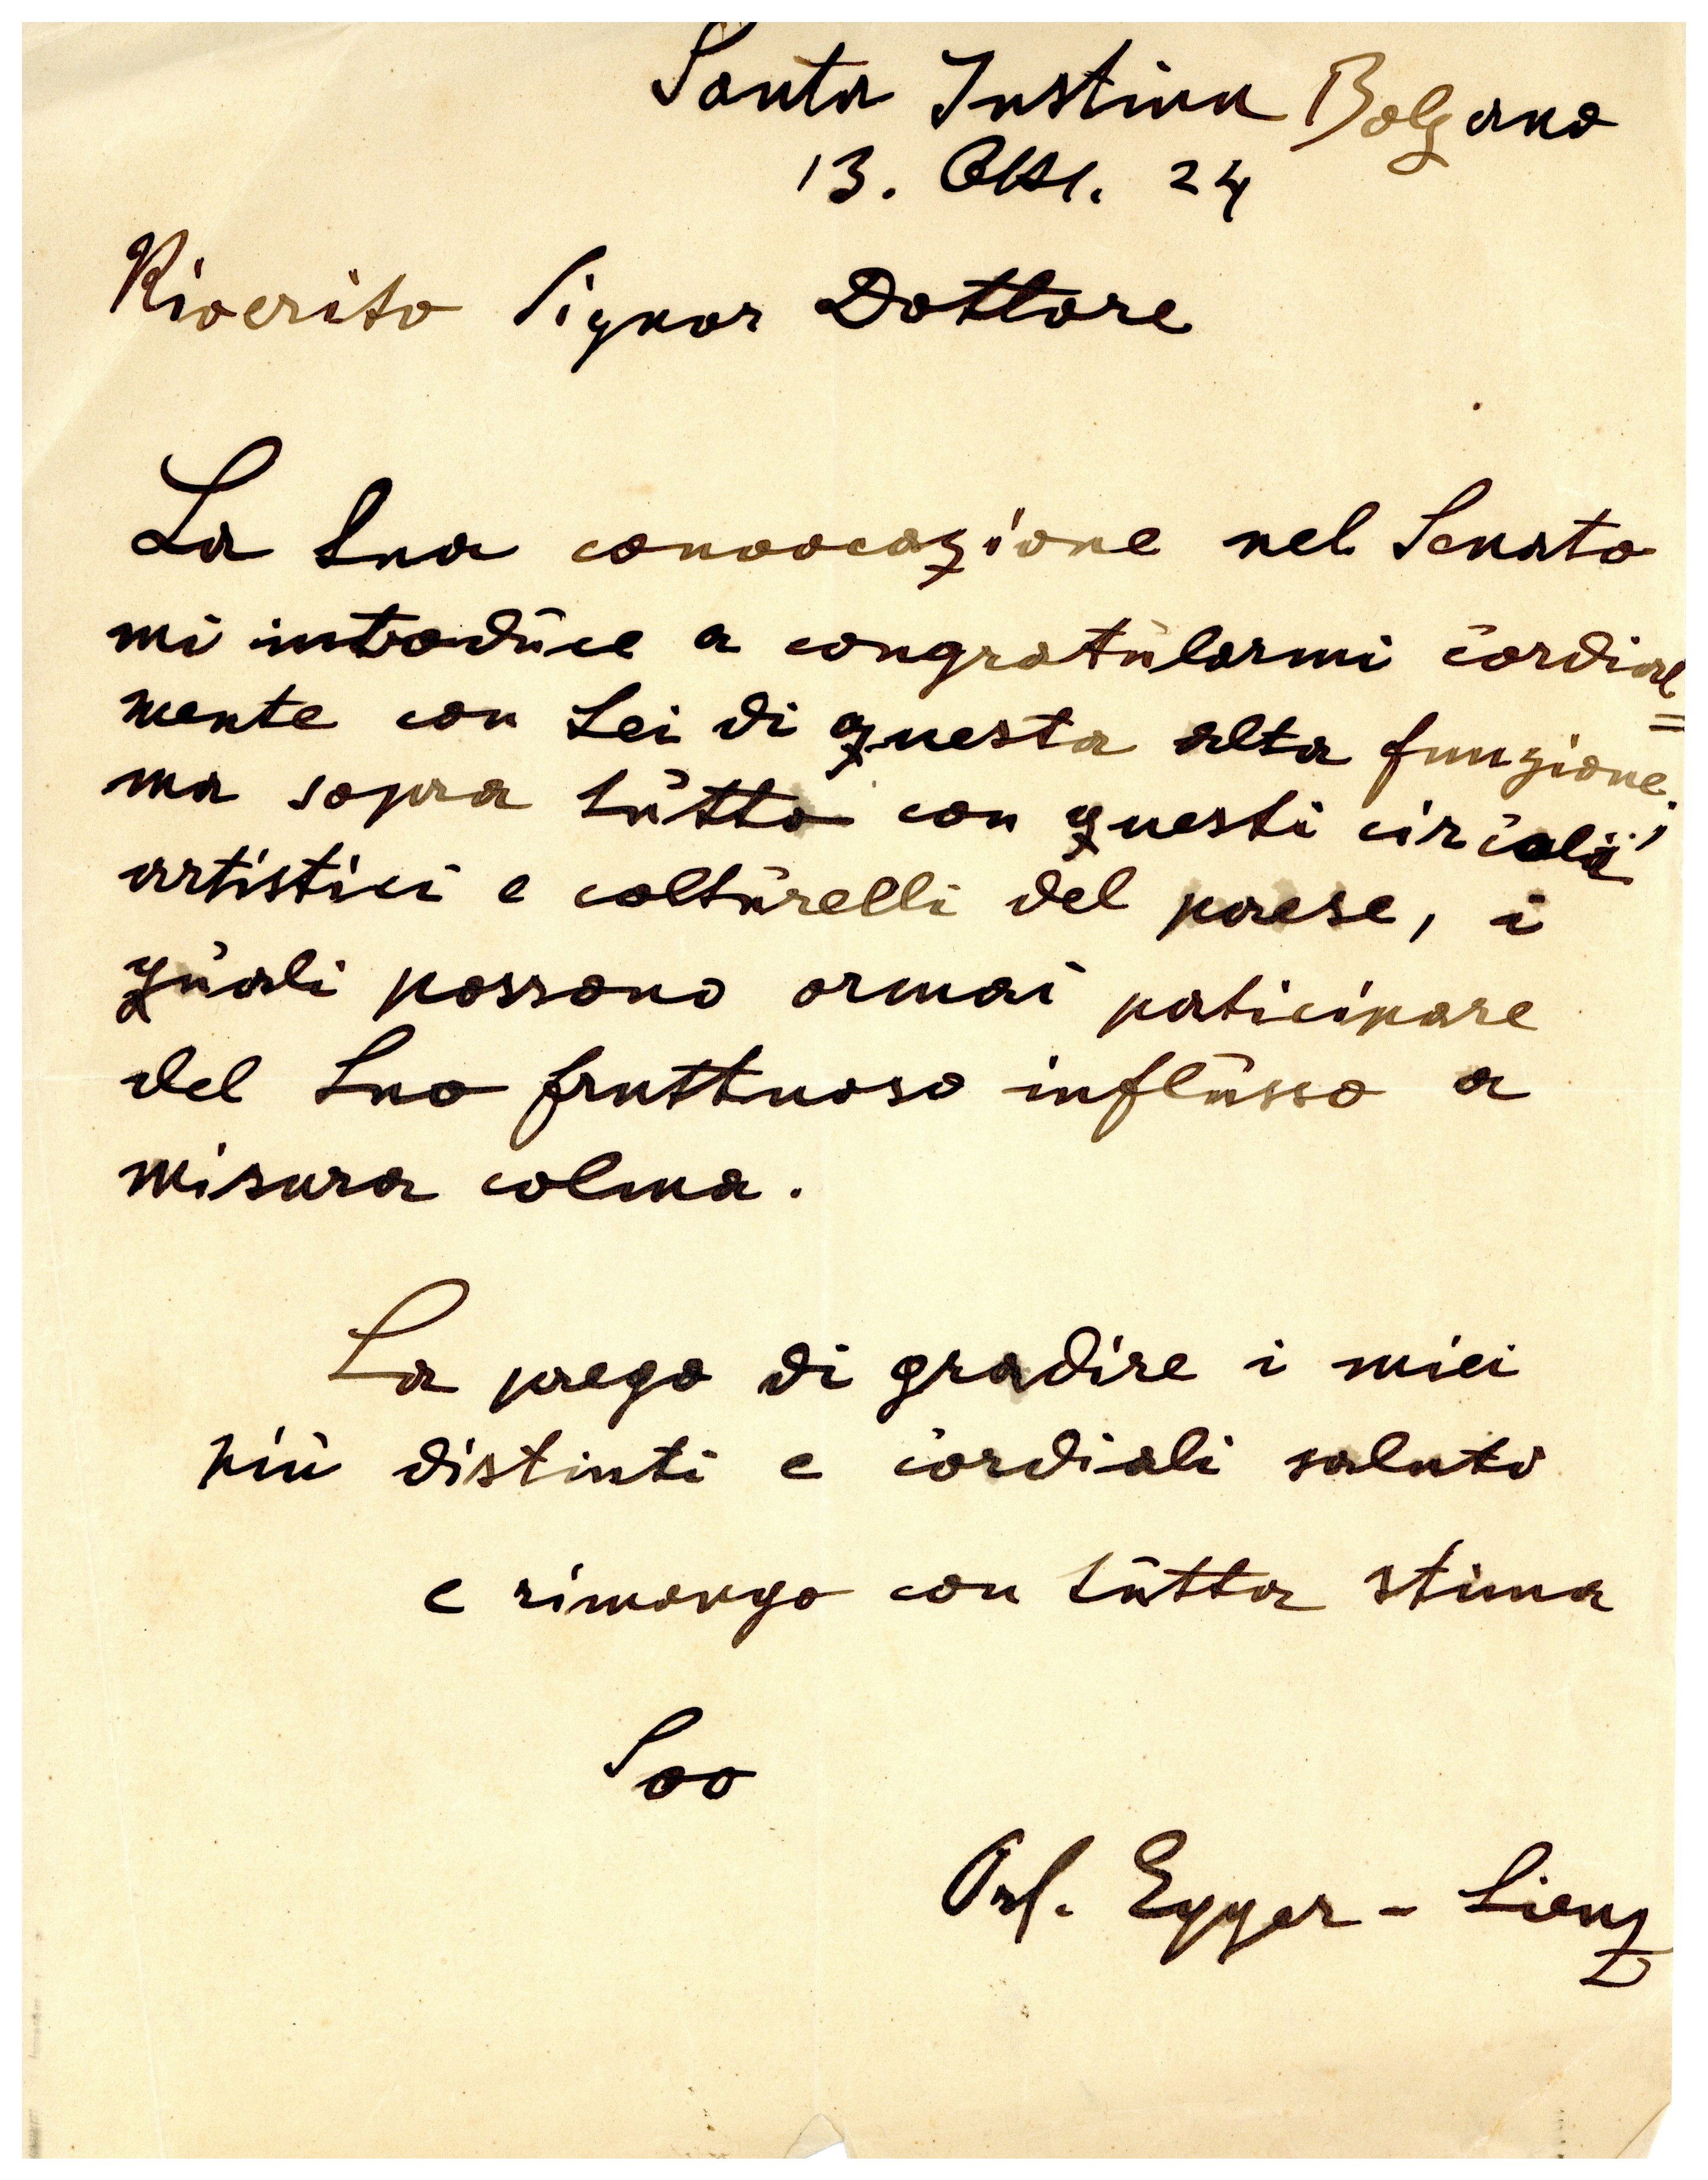 Santa Justina Bolzano
13. Okt. 24
Riverito Signor Dottore
La Sua convocazione nel Senato
mi introduce a congratularmi cordial=
mente con Lei di questa alta funzione,
ma sopra tutto con questi circoli
artistici e colturelli del paese, i
quali possono ormai paticipare
del Suo fruttuoso influsso a
misura colma.
La prego di gradire i miei
più distinti e cordiali saluti
e rimango con tutta stima
Suo
Egger-Lienz